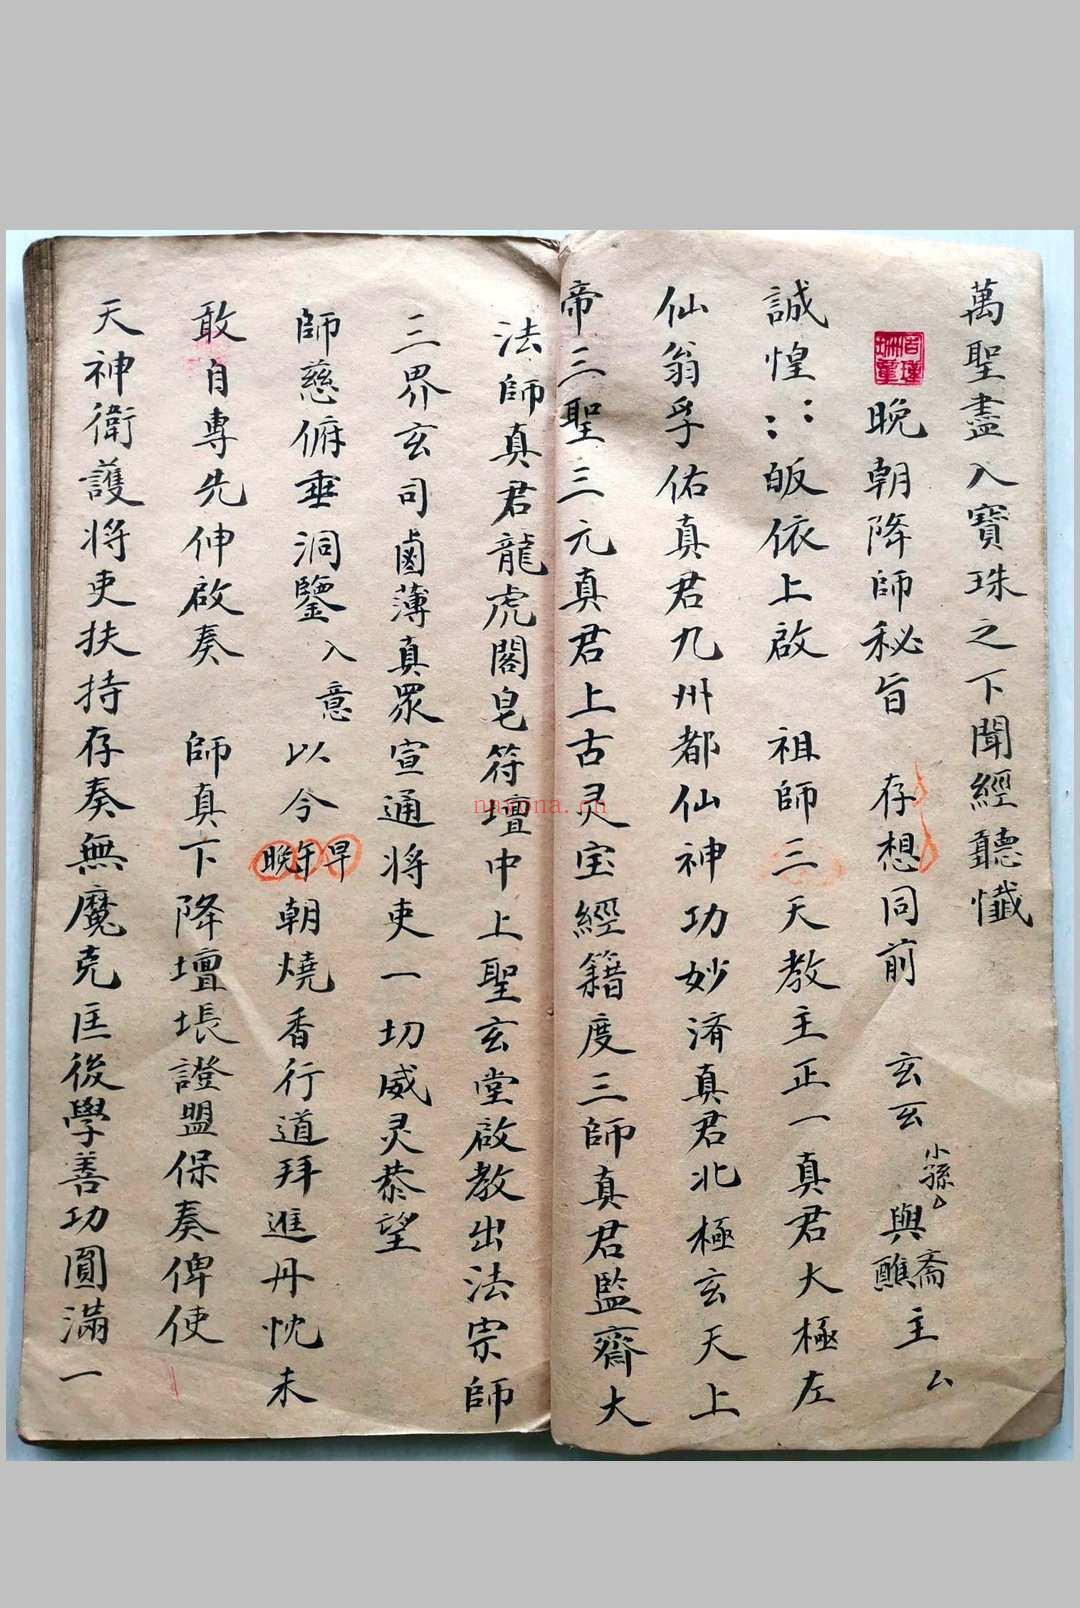 萬聖盡入寶珠之下聞經聽懺
晚朝降師秘旨 存想同前 玄玄 小孫厶 與齋醮主厶
誠惶〻〻皈依上啟 祖師三天教主正一真君大極左
仙翁孚佑真君九州都仙神功妙済真君北極玄天上
帝三聖三元真君上古灵宝經籍度三師真君監齋大
法師真君龍虎閣皂符壇中上聖玄堂啟教出法宗師
三界玄司鹵薄真眾宣通將吏一切威灵恭望
師慈俯垂洞鑒 入意 以今早午晚朝燒香行道拜進丹忱未
敢自專先伸啟奏 師真下降壇塲證盟保奏俾使
天神衛護將吏扶持存奏無魔克匡後學善功圓滿一
nayona.cn